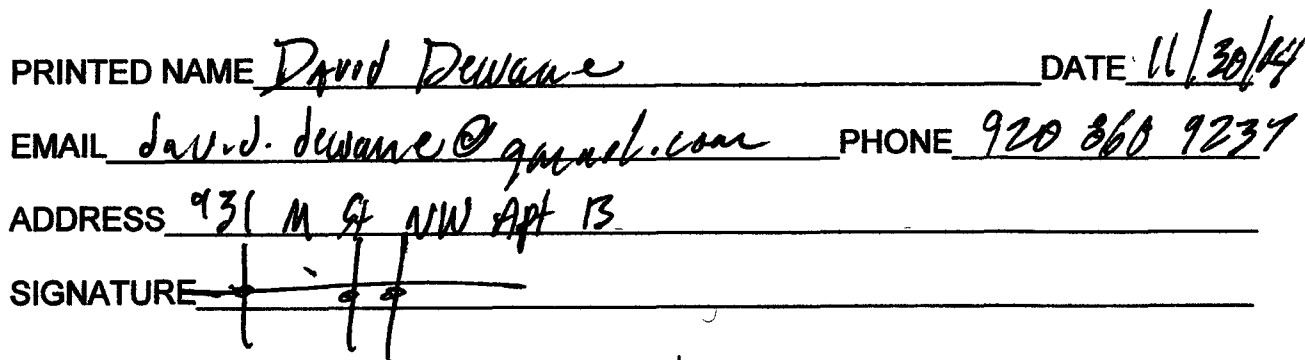 PRINTED NAME David Dewane DATE 11/30/14
EMAIL david.dewane@gmail.com PHONE 920 360 9237
ADDRESS 931 M St NW Apt B
SIGNATURE